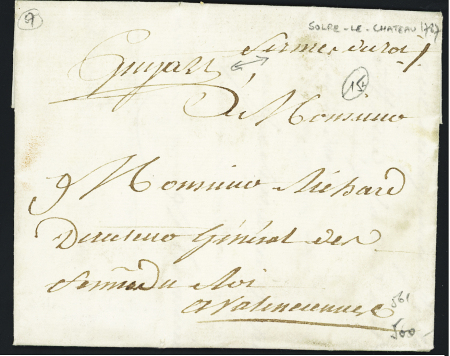 9
SOLRE-LE-CHATEAU 1787
fermes du roi
Guyard
15
A Monsieur
Monsieur Richard
Directeur Général des
fermes du Roi
A Valenciennes
561
500